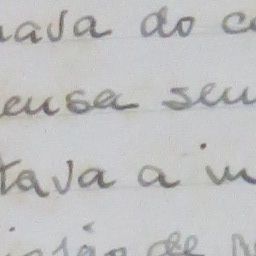 ava do c
ensa seu
tava a in
de